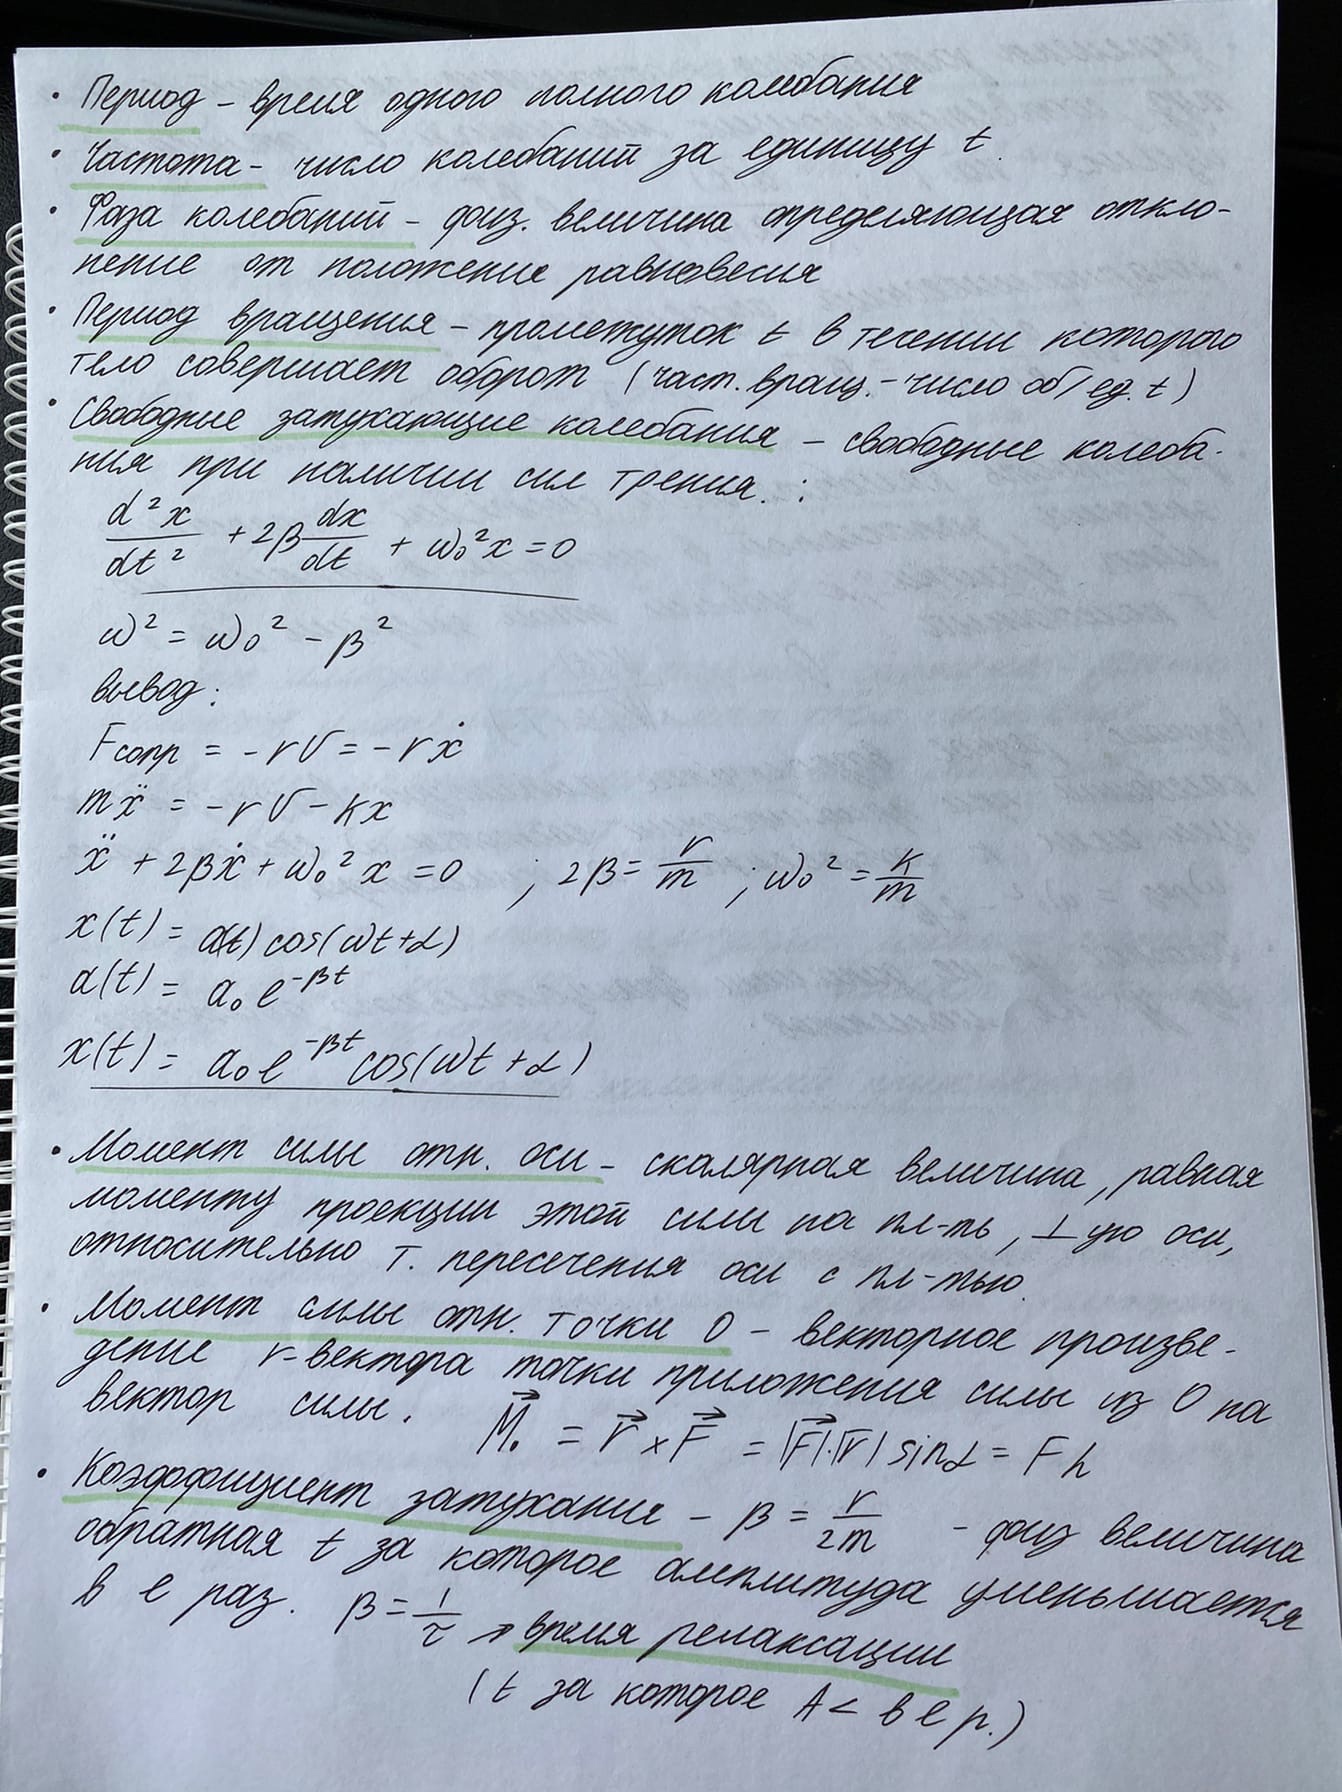 · Период – время одного полного колебания
· Частота – число колебаний за единицу t.
· Фаза колебаний – физ. величина определяющая откло-
нение от положения равновесия
· Период вращения – промежуток t в течении которого
тело совершает оборот (част. вращ. – число об/ед. t)
· Свободные затухающие колебания – свободные колеба-
ния при наличии сил трения. :
d²x/dt² + 2β dx/dt + ω₀²x = 0
ω² = ω₀² – β²
вывод:
Fсопр = –rV = –rẋ
mẍ = –rV – kx
ẍ + 2βẋ + ω₀²x = 0 ; 2β = r/m ; ω₀² = k/m
x(t) = a(t) cos(ωt+α)
a(t) = a₀e^(–βt)
x(t) = a₀e^(–βt) cos(ωt+α)
· Момент силы отн. оси – скалярная величина, равная
моменту проекции этой силы на пл-ть, ⊥ую оси,
относительно т. пересечения оси с пл-тью.
· Момент силы отн. точки О – векторное произве-
дение r-вектора точки приложения силы из О на
вектор силы. M⃗₀ = r⃗ × F⃗ = |F⃗|·|r⃗| sinα = Fh
· Коэффициент затухания – β = r/2m – физ величина
обратная t за которое амплитуда уменьшается
в e раз. β = 1/τ → время релаксации
(t за которое A < в e р.)